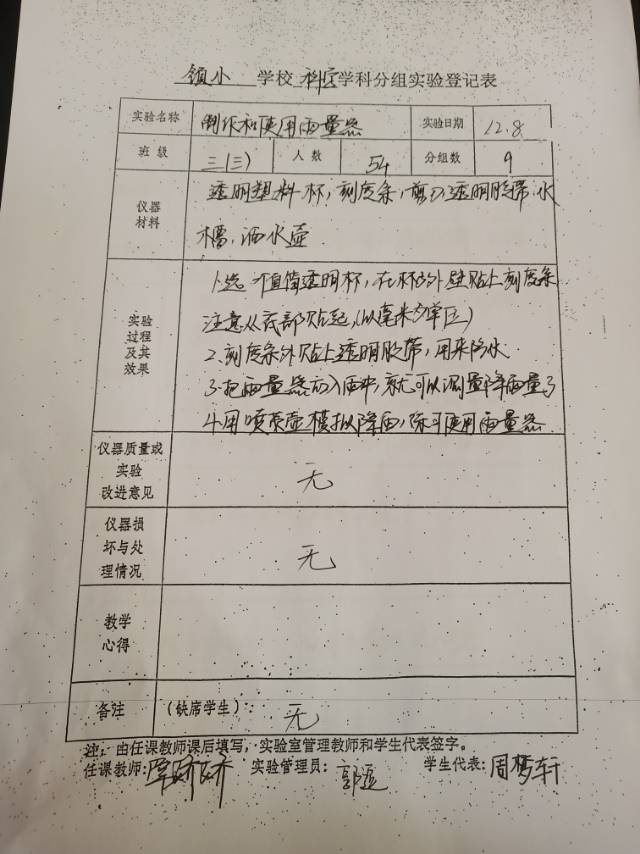 镇小 学校 科学 学科分组实验登记表
实验名称 制作和使用雨量器 实验日期 12.8
班级 三(三) 人数 54 分组数 9
仪器材料 透明塑料杯,刻度条,剪刀,透明胶带,水
槽,洒水壶
实验过程及其效果 1.选 直筒透明杯,在杯的外壁贴上刻度条
注意从底部贴起,(以毫米为单位)
2.刻度条外贴上透明胶带,用来防水
3.把雨量器放入雨中,就可以测量降雨量了
4.用喷壶模拟降雨,练习使用雨量器
仪器质量或实验改进意见 无
仪器损坏与处理情况 无
教学心得
备注 (缺席学生): 无
注:由任课教师课后填写,实验室管理教师和学生代表签字。
任课教师: 实验管理员: 学生代表:周梦轩